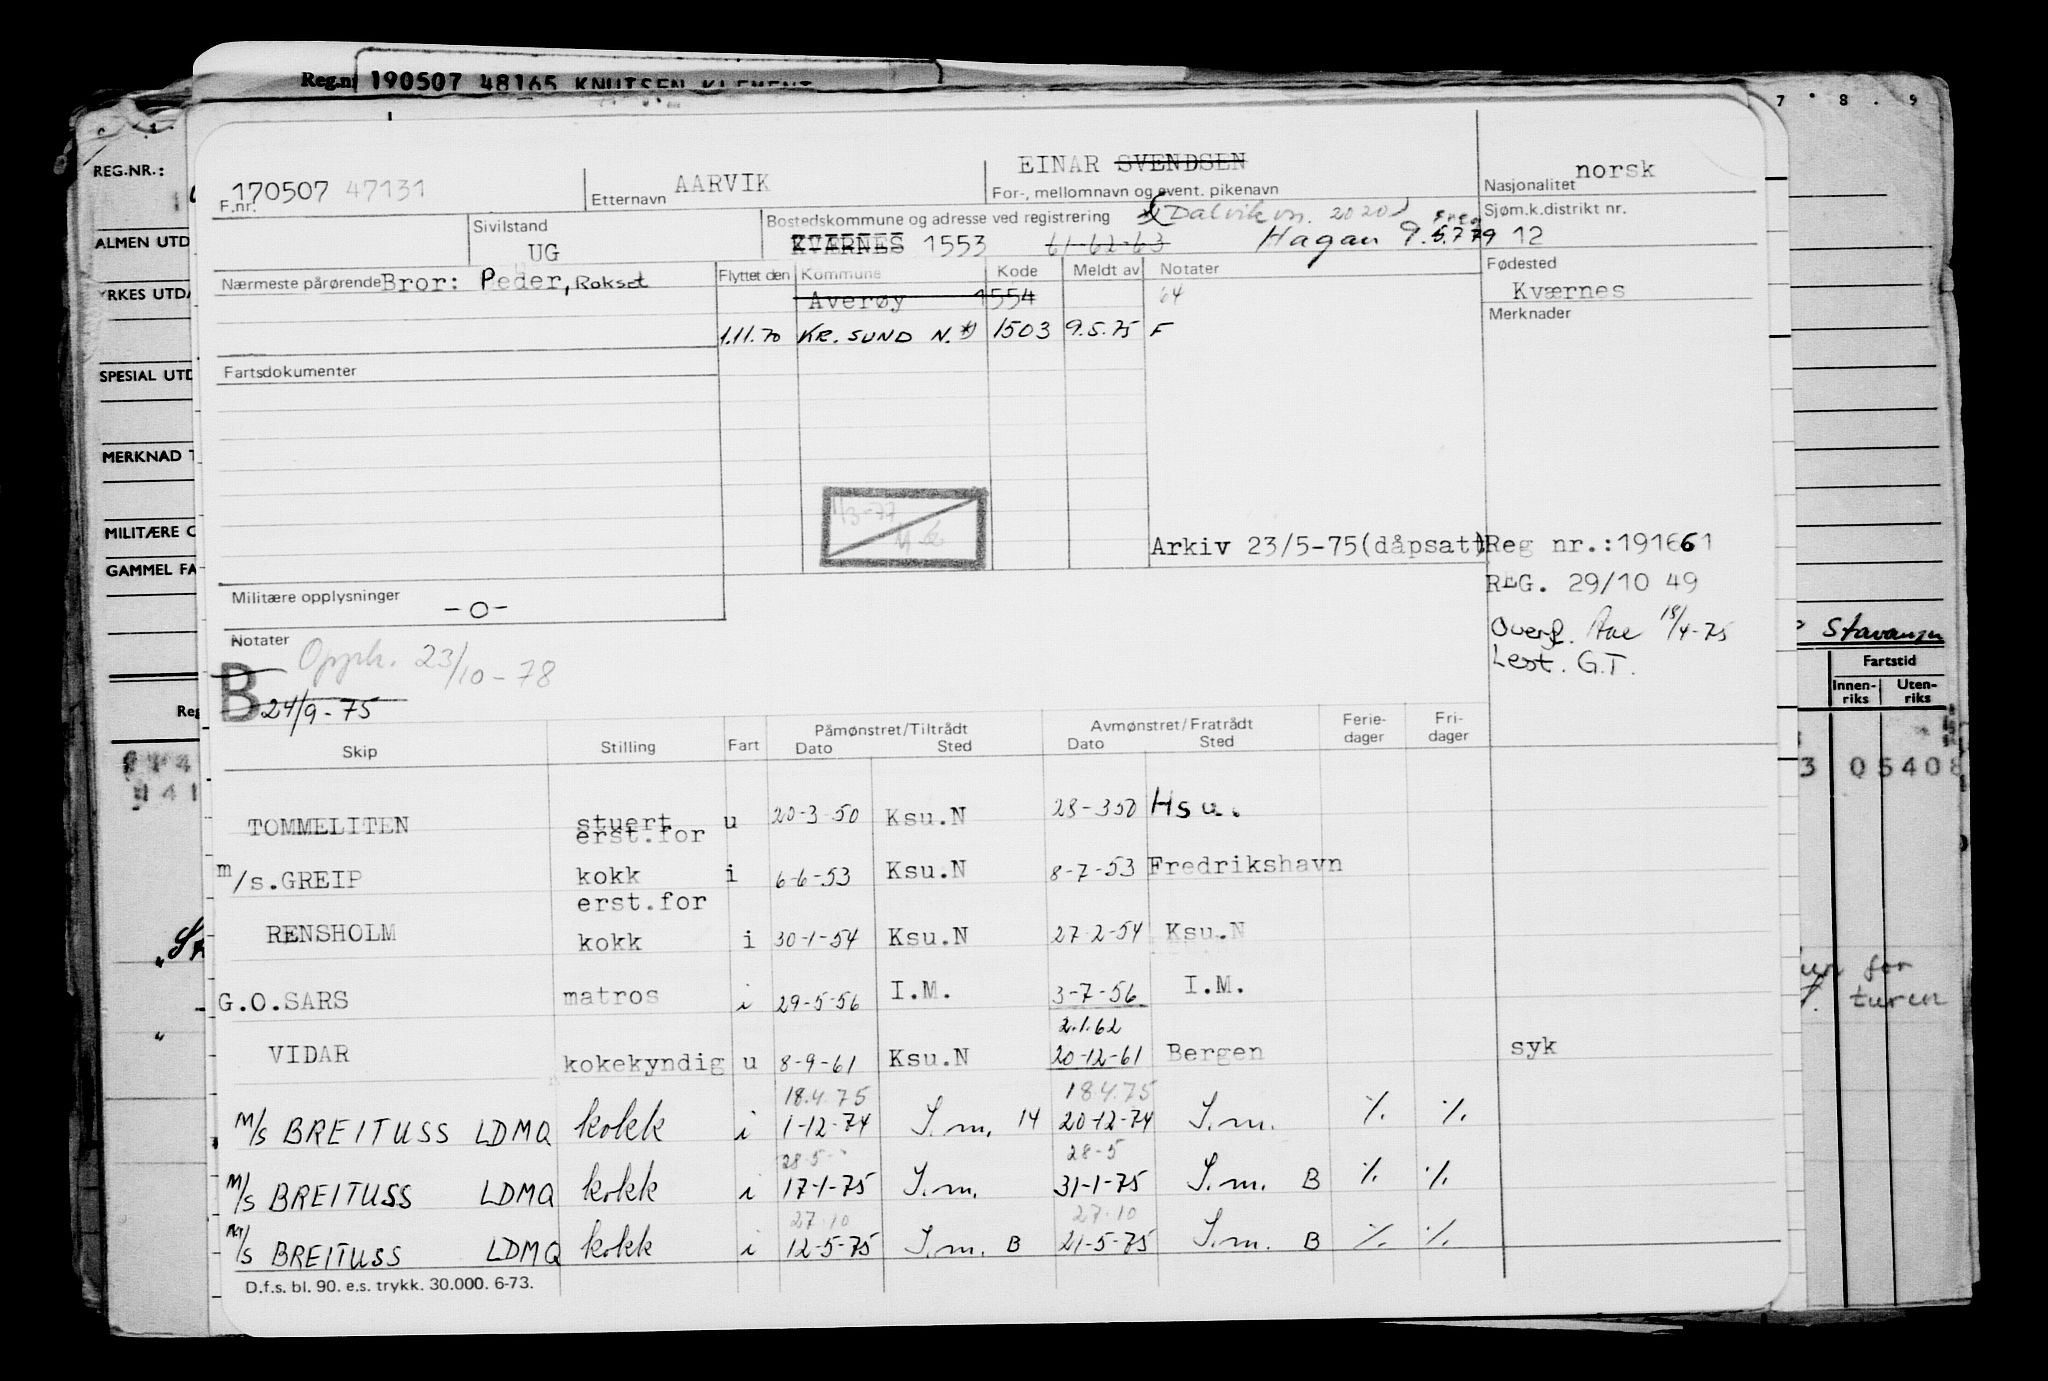 Reg.nr 190507 48165 KNUTSEN KLEMENT
7 8 9
REG.NR.:
ALMEN UTD
YRKES UTDA
SPESIAL UTD
MERKNAD T
MILITÆRE O
GAMMEL FA
Reg
170507 47131
F.nr.
AARVIK
Etternavn
EINAR SVENDSEN
For-, mellomnavn og event. pikenavn
norsk
Nasjonalitet
Sivilstand
UG
Bostedskommune og adresse ved registrering
(Dalvikvn. 2020)
KVÆRNES 1553 61-62-63 Hagan 9.5.779
Sjøm.k.distrikt nr.
12
Nærmeste pårørende Bror: Peder, Rokset
Flyttet den Kommune Kode Meldt av Notater
Fødested
Kværnes
Averøy 1554 64
Merknader
1.11.70 KR. SUND N.*) 1503 9.5.75 F
Fartsdokumenter
1/3-77
Arkiv 23/5-75(dåpsatt)
Reg nr.:191661
REG. 29/10 49
Militære opplysninger -0-
Overf. Aae 18/4-75
Lest. G.T.
Notater
Opprh. 23/10-78
B
24/9-75
Stavanger
Fartstid
Innen-riks Uten-riks
Skip Stilling Fart Påmønstret/Tiltrådt Avmønstret/Fratrådt Ferie-dager Fri-dager
Dato Sted Dato Sted
3 05408
TOMMELITEN stuert u 20-3-50 Ksu.N 28-350 Hsu.
erst.for
m/s.GREIP kokk i 6-6-53 Ksu.N 8-7-53 Fredrikshavn
erst.for
RENSHOLM kokk i 30-1-54 Ksu.N 27-2-54 Ksu.N
G.O.SARS matros i 29-5-56 I.M. 3-7-56 I.M.
for
turen
2.1.62
VIDAR kokekyndig u 8-9-61 Ksu.N 20-12-61 Bergen syk
18.4.75 18.4.75
M/S BREITUSS LDMQ kokk i 1-12-74 I.m. 14 20-12-74 I.m. ./. ./.
28-5- 28-5
M/S BREITUSS LDMQ kokk i 17-1-75 I.m. 31-1-75 I.m. B ./. ./.
27.10 27.10
M/S BREITUSS LDMQ kokk i 12-5-75 I.m. B 21-5-75 I.m. B ./. ./.
D.f.s. bl. 90. e.s. trykk. 30.000. 6-73.